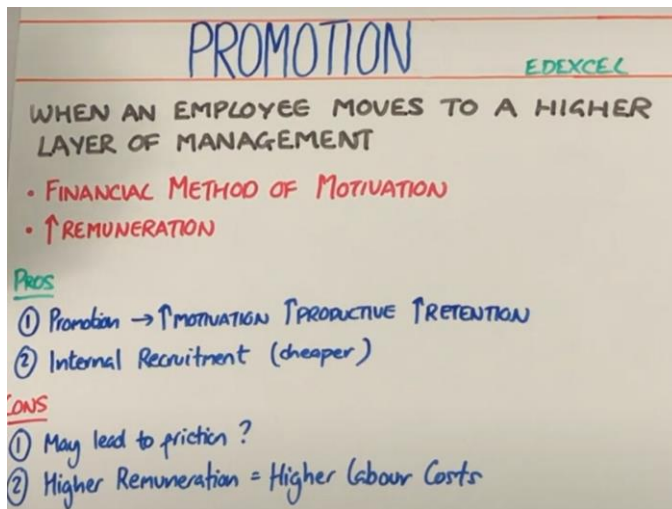 PROMOTION
EDEXCEL
WHEN AN EMPLOYEE MOVES TO A HIGHER
LAYER OF MANAGEMENT
• FINANCIAL METHOD OF MOTIVATION
• ↑ REMUNERATION
PROS
① Promotion → ↑MOTIVATION ↑PRODUCTIVE ↑RETENTION
② Internal Recruitment (cheaper)
CONS
① May lead to friction ?
② Higher Remuneration = Higher Labour Costs